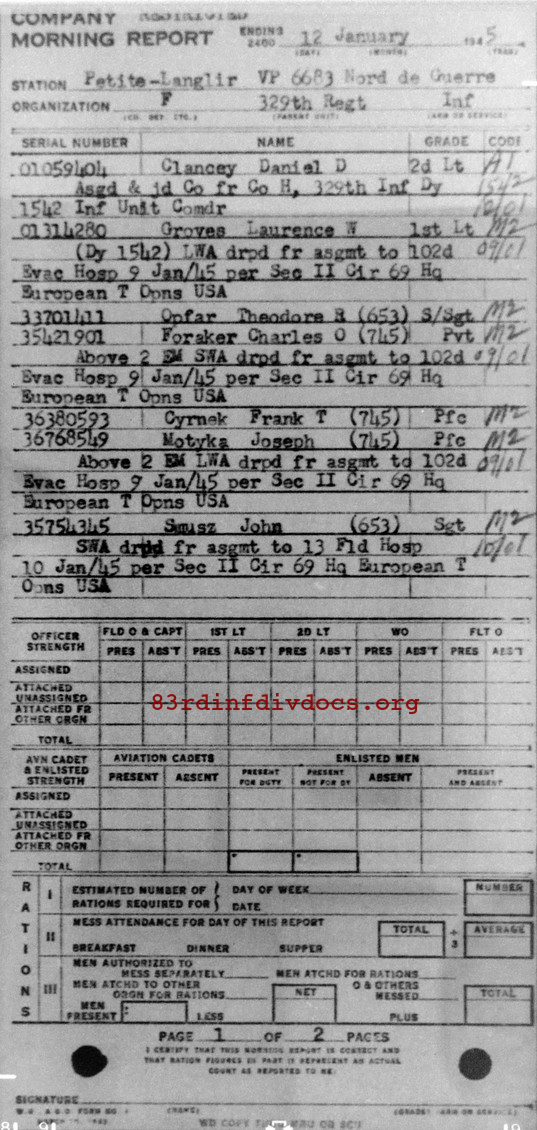 COMPANY
MORNING REPORT ENDING 2400 12 January 1945
(DAY) (MONTH) (YEAR)
STATION Petite-Langlir VP 6683 Nord de Guerre
ORGANIZATION F 329th Regt Inf
(CO. DET. ETC.) (PARENT UNIT) (ARM OR SERVICE)
SERIAL NUMBER NAME GRADE CODE
01059404 Clancey Daniel D 2d Lt A1
Asgd & jd Co fr Co H, 329th Inf Dy 1542
1542 Inf Unit Comdr 10/01
01314280 Groves Laurence W 1st Lt M2
(Dy 1542) LWA drpd fr asgmt to 102d 09/01
Evac Hosp 9 Jan/45 per Sec II Cir 69 Hq
European T Opns USA
33701411 Opfar Theodore R (653) S/Sgt M2
35421901 Foraker Charles O (745) Pvt M2
Above 2 EM SWA drpd fr asgmt to 102d 09/01
Evac Hosp 9 Jan/45 per Sec II Cir 69 Hq
European T Opns USA
36380593 Cyrnek Frank T (745) Pfc M2
36768549 Motyka Joseph (745) Pfc M2
Above 2 EM LWA drpd fr asgmt to 102d 09/01
Evac Hosp 9 Jan/45 per Sec II Cir 69 Hq
European T Opns USA
35754345 Smusz John (653) Sgt M2
SWA drpd fr asgmt to 13 Fld Hosp 10/01
10 Jan/45 per Sec II Cir 69 Hq European T
Opns USA
OFFICER STRENGTH FLD O & CAPT 1ST LT 2D LT WO FLT O
PRES ABS'T PRES ABS'T PRES ABS'T PRES ABS'T PRES ABS'T
ASSIGNED
ATTACHED UNASSIGNED
ATTACHED FR OTHER ORGN
TOTAL
83rdinfdivdocs.org
AVN CADET & ENLISTED STRENGTH AVIATION CADETS ENLISTED MEN
PRESENT ABSENT PRESENT FOR DUTY PRESENT NOT FOR DY ABSENT PRESENT AND ABSENT
ASSIGNED
ATTACHED UNASSIGNED
ATTACHED FR OTHER ORGN
TOTAL
RATIONS
I ESTIMATED NUMBER OF RATIONS REQUIRED FOR DAY OF WEEK DATE NUMBER
II MESS ATTENDANCE FOR DAY OF THIS REPORT TOTAL ÷ 3 AVERAGE
BREAKFAST DINNER SUPPER
III MEN AUTHORIZED TO MESS SEPARATELY MEN ATCHD FOR RATIONS
MEN ATCHD TO OTHER ORGN FOR RATIONS NET O & OTHERS MESSED TOTAL
MEN PRESENT LESS PLUS
PAGE 1 OF 2 PAGES
I CERTIFY THAT THIS MORNING REPORT IS CORRECT AND
THAT RATION FIGURES IN PART II REPRESENT AN ACTUAL
COUNT AS REPORTED TO ME.
SIGNATURE
W.D. A.G.O. FORM NO 1 (NAME) (GRADE) ARM OR SERVICE)
WD COPY